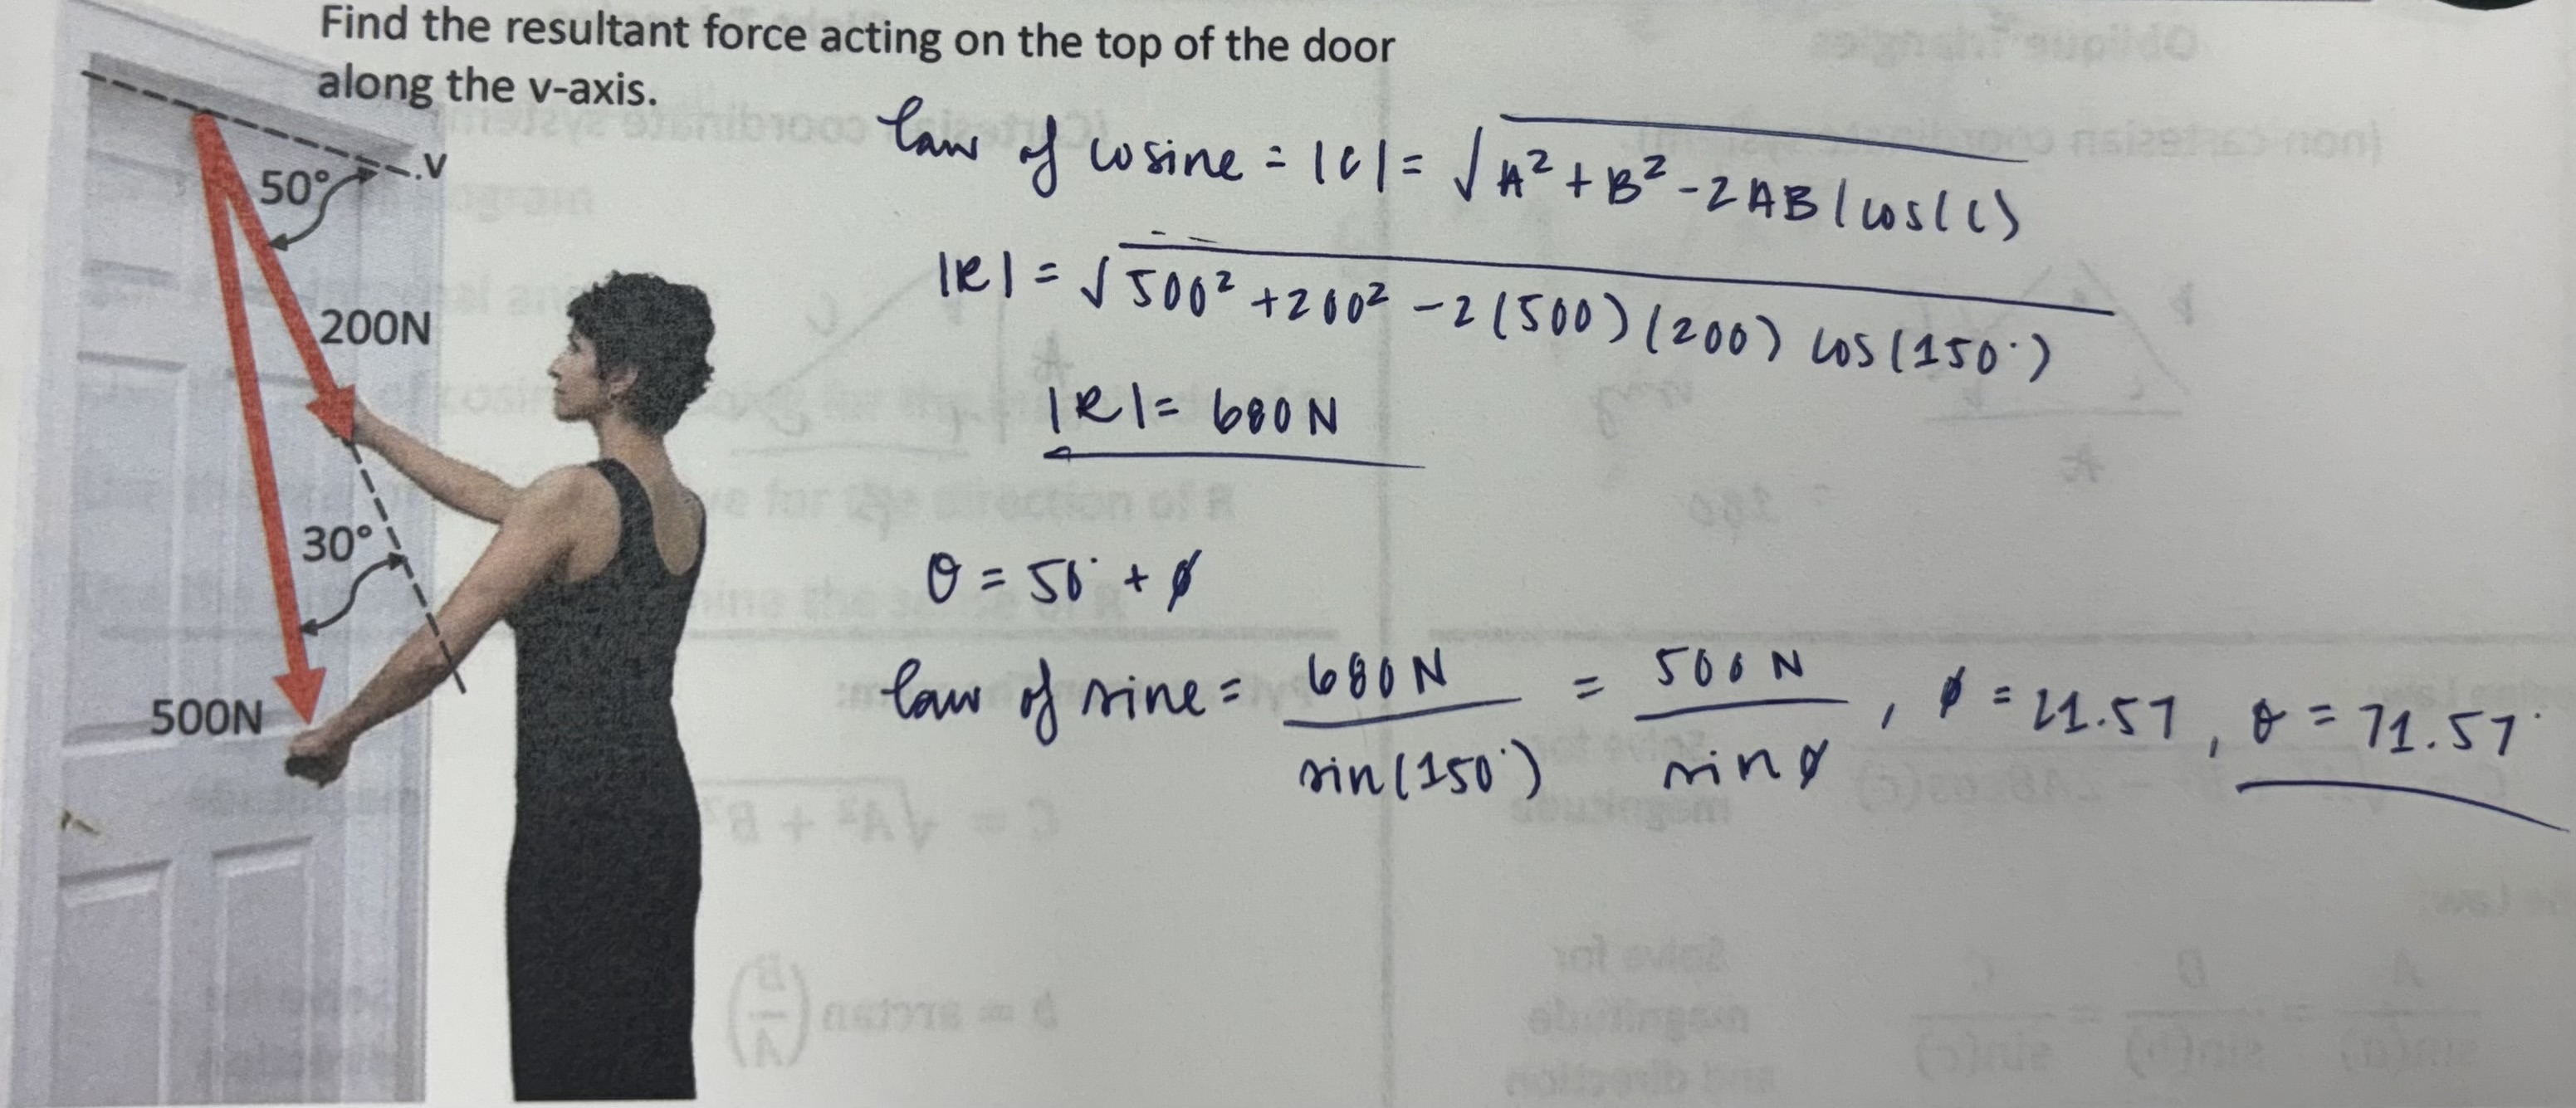 Find the resultant force acting on the top of the door
along the v-axis.
law of cosine = |C| = √A² + B² - 2AB(cos(c)
50°
v
|R| = √500² + 200² - 2(500)(200) cos(150°)
200N
|R| = 680 N
30°
θ = 50° + ø
500N
law of sine = 680 N / sin(150°) = 500 N / sin ø , ø = 21.57 , θ = 71.57°